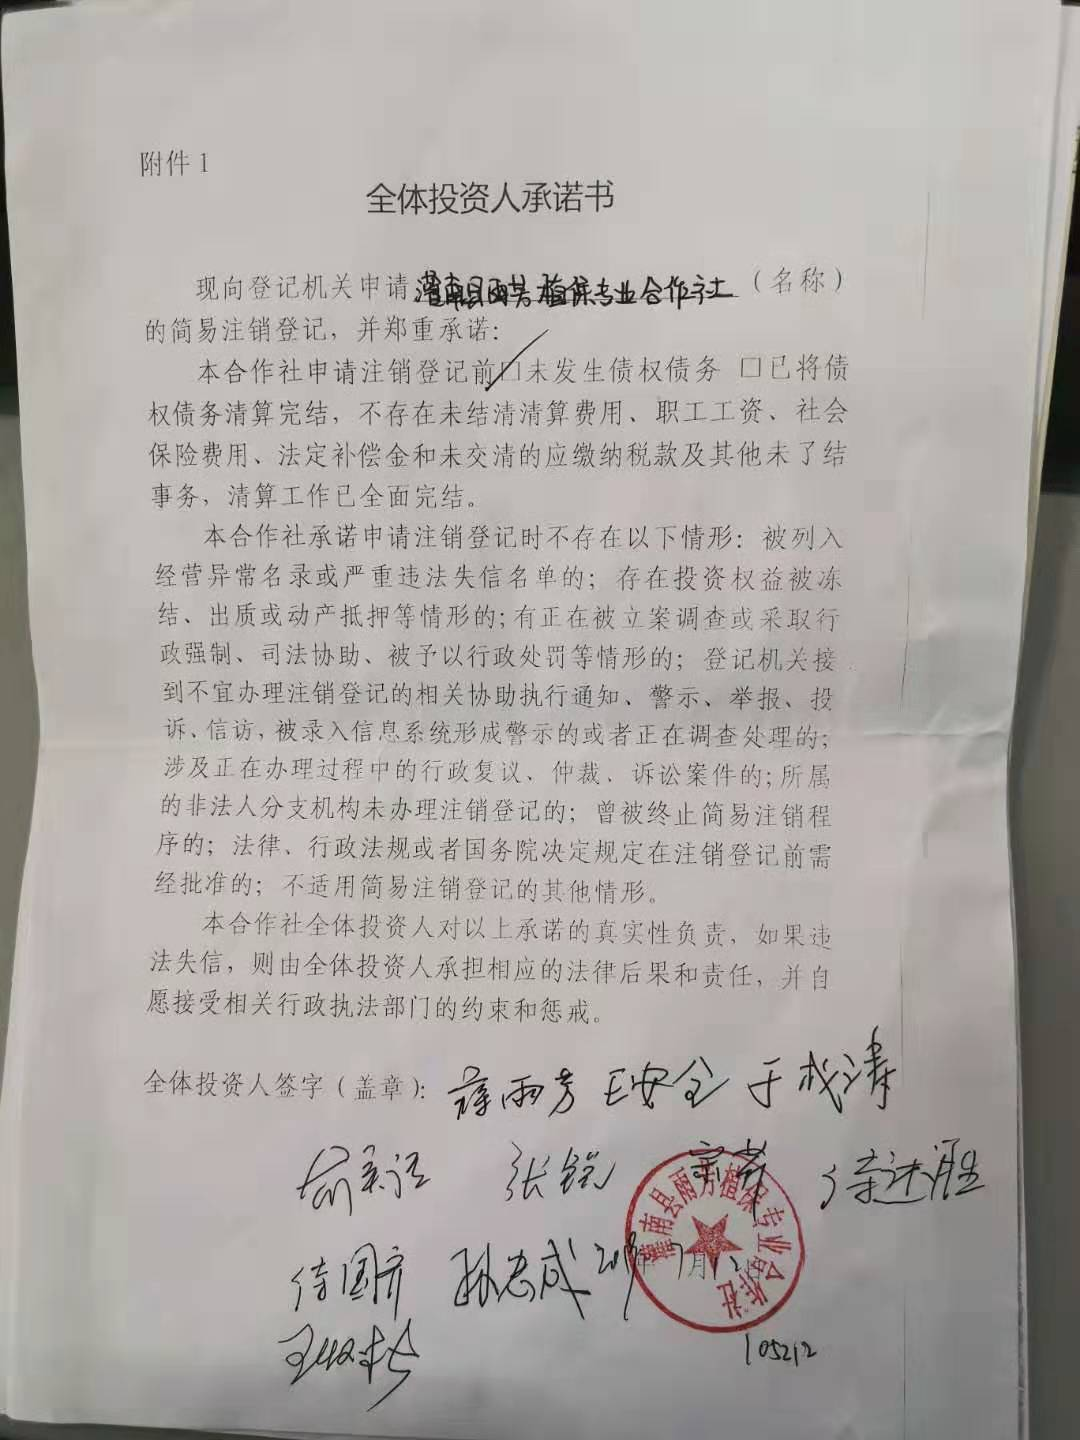 附件1
全体投资人承诺书
现向登记机关申请灌南县雨芳植保专业合作社（名称）
的简易注销登记，并郑重承诺：
本合作社申请注销登记前□未发生债权债务 □已将债
权债务清算完结，不存在未结清清算费用、职工工资、社会
保险费用、法定补偿金和未交清的应缴纳税款及其他未了结
事务，清算工作已全面完结。
本合作社承诺申请注销登记时不存在以下情形：被列入
经营异常名录或严重违法失信名单的；存在投资权益被冻
结、出质或动产抵押等情形的；有正在被立案调查或采取行
政强制、司法协助、被予以行政处罚等情形的；登记机关接
到不宜办理注销登记的相关协助执行通知、警示、举报、投
诉、信访，被录入信息系统形成警示的或者正在调查处理的；
涉及正在办理过程中的行政复议、仲裁、诉讼案件的；所属
的非法人分支机构未办理注销登记的；曾被终止简易注销程
序的；法律、行政法规或者国务院决定规定在注销登记前需
经批准的；不适用简易注销登记的其他情形。
本合作社全体投资人对以上承诺的真实性负责，如果违
法失信，则由全体投资人承担相应的法律后果和责任，并自
愿接受相关行政执法部门的约束和惩戒。
全体投资人签字（盖章）：薛雨芳 王安全 于成涛
张锐 待达胜
侍国齐 孙志成 年7月12
灌南县雨芳植保专业合作社
105212